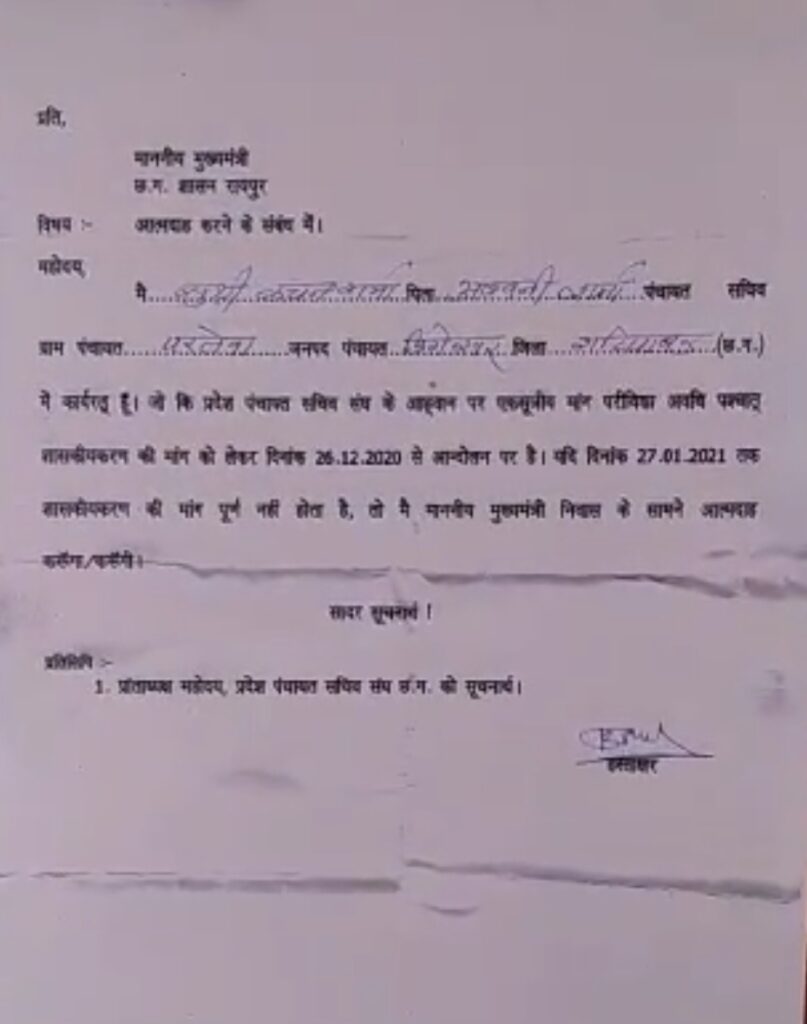 प्रति,
माननीय मुख्यमंत्री
छ.ग. शासन रायपुर
विषय :- आत्मदाह करने के संबंध में।
महोदय,
मै.......................पिता.......................पंचायत सचिव
ग्राम पंचायत..............जनपद पंचायत..............जिला..............(छ.ग.)
में कार्यरत् हूँ। जो कि प्रदेश पंचायत सचिव संघ के आह्वान पर एकसूत्रीय मांग परीविक्षा अवधि पश्चात्
शासकीयकरण की मांग को लेकर दिनांक 26.12.2020 से आन्दोलन पर है। यदि दिनांक 27.01.2021 तक
शासकीयकरण की मांग पूर्ण नहीं होता है, तो मै माननीय मुख्यमंत्री निवास के सामने आत्मदाह
करूँगा/करूँगी।
सादर सूचनार्थ !
प्रतिलिपि :-
1. प्रांताध्यक्ष महोदय, प्रदेश पंचायत सचिव संघ छ.ग. को सूचनार्थ।
हस्ताक्षर